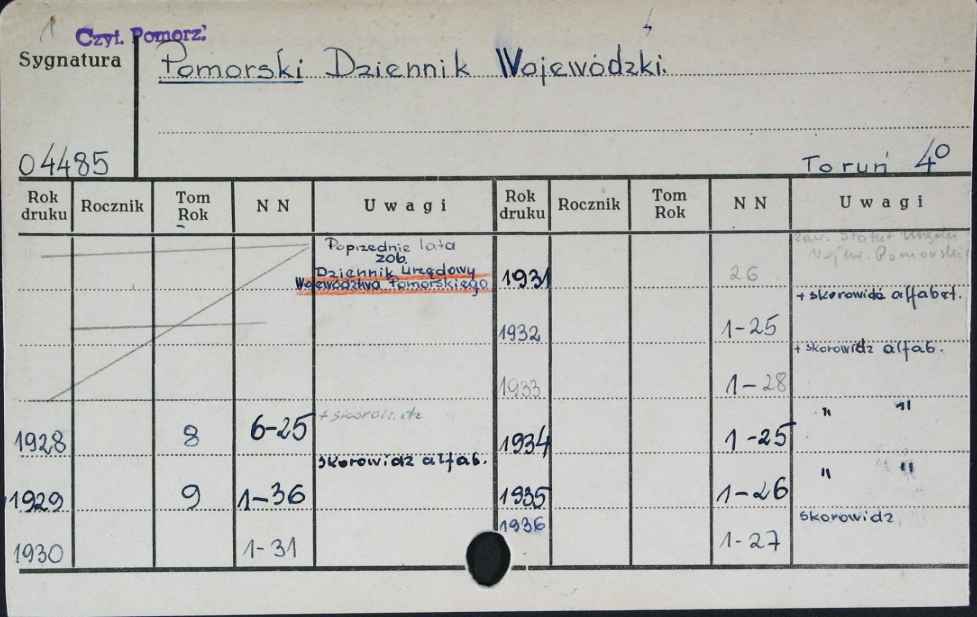 Czyt. Pomorz:
Sygnatura
Pomorski Dziennik Wojewódzki.
04485
Toruń 4°
Rok druku Rocznik Tom Rok NN Uwagi Rok druku Rocznik Tom Rok NN Uwagi
Poprzednie lata
zob.
Dziennik Urzędowy
Województwa Pomorskiego
1928 8 6-25
skorowidz alfab.
1929 9 1-36
1930 1-31
zaw. Statut
Pomorski
1931 26
+ skorowidz alfabet.
1932 1-25
+ skorowidz alfab.
1933 1-28
" "
1934 1-25
" "
1935 1-26
skorowidz
1936 1-27